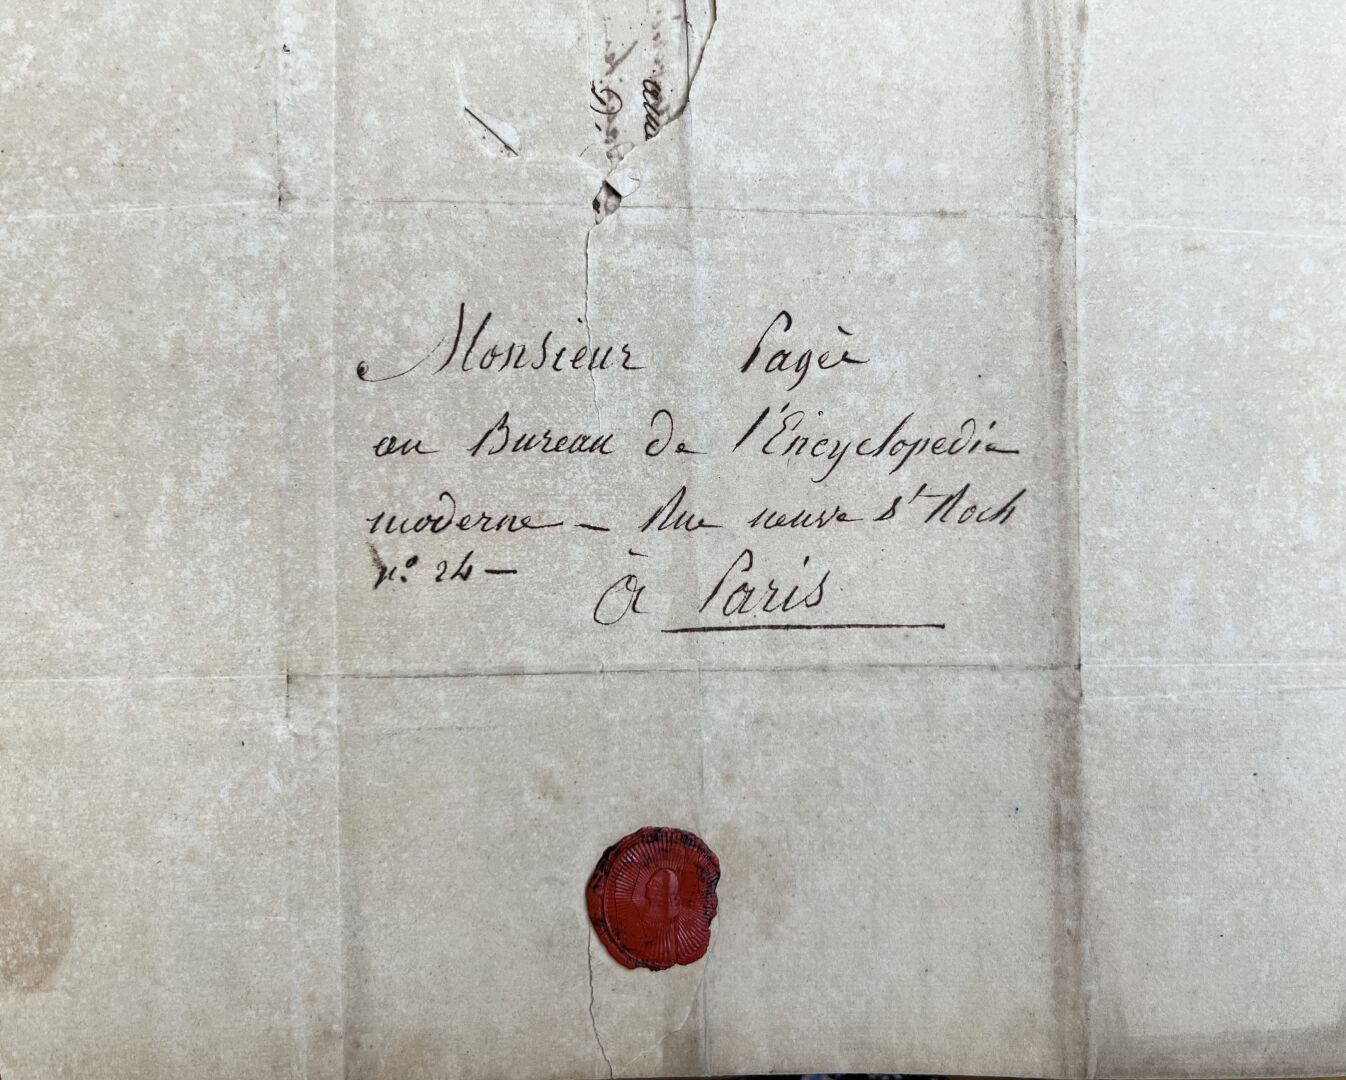 Monsieur Pagès
au Bureau de l'Encyclopedie
moderne - Rue neuve St Roch
n.º 24 -
à Paris